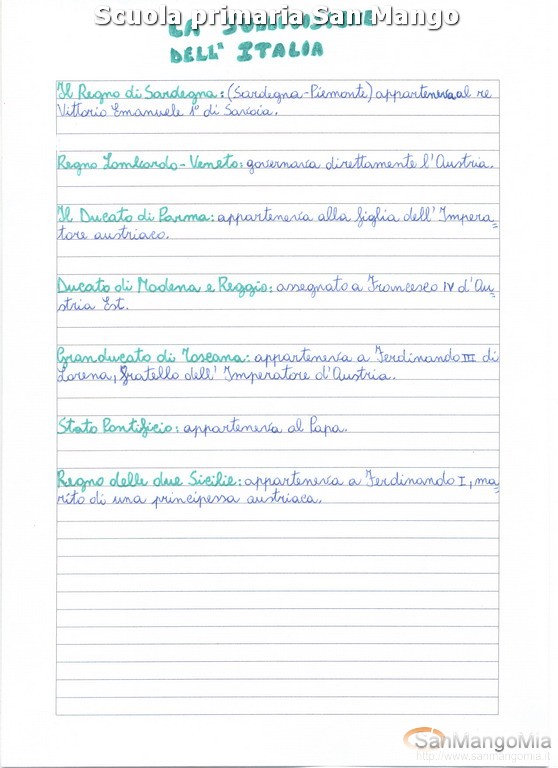 Scuola primaria San Mango
LA SUDDIVISIONE
DELL' ITALIA
Il Regno di Sardegna: (Sardegna-Piemonte) apparteneva al re
Vittorio Emanuele 1° di Savoia.
Regno Lombardo-Veneto: governava direttamente l'Austria.
Il Ducato di Parma: apparteneva alla figlia dell' Impera=
tore austriaco.
Ducato di Modena e Reggio: assegnato a Francesco IV d'Au=
stria Est.
Granducato di Toscana: apparteneva a Ferdinando III di
Lorena, fratello dell' Imperatore d'Austria.
Stato Pontificio: apparteneva al Papa.
Regno delle due Sicilie: apparteneva a Ferdinando I, ma=
rito di una principessa austriaca.
SanMangoMia
http://www.sanmangomia.it